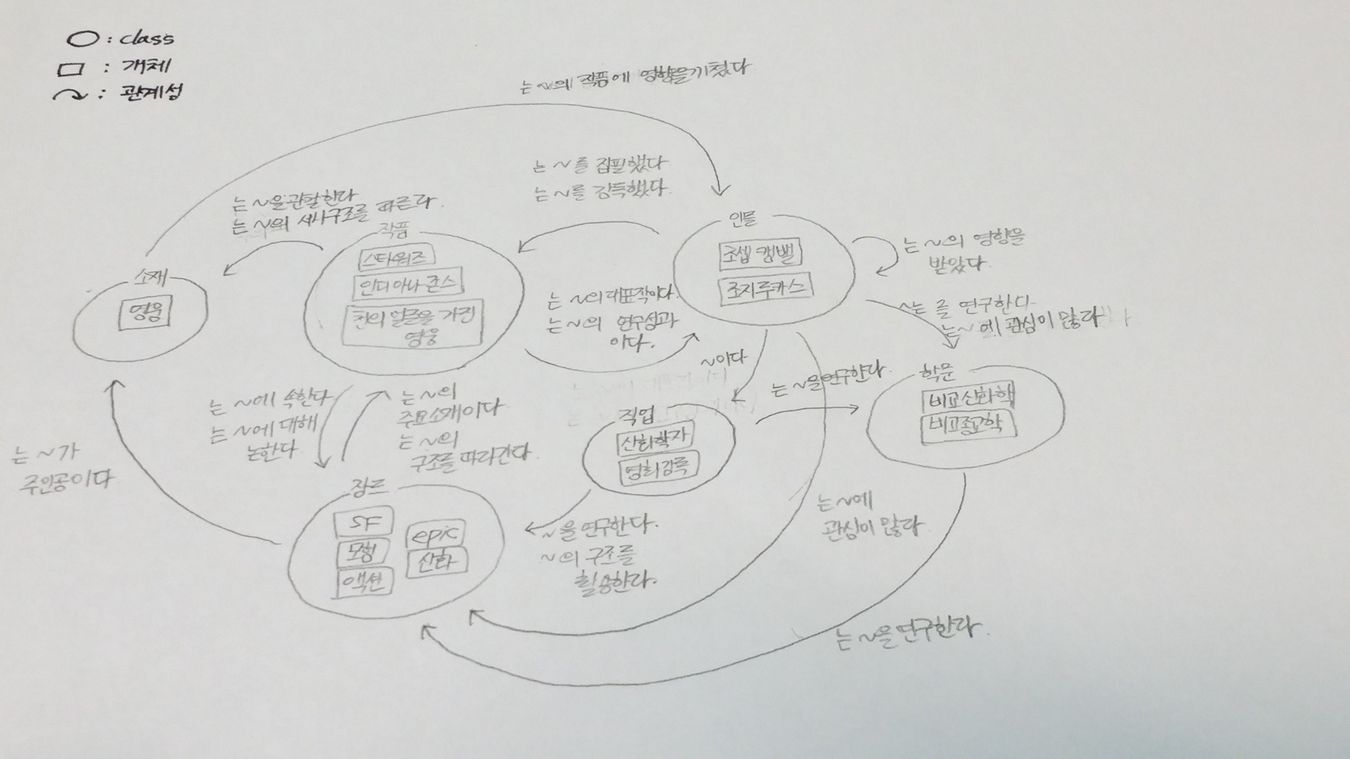 ○ : class
□ : 개체
↷ : 관계성
는 ~의 작품에 영향을 끼쳤다
는 ~을 관찰한다
는 ~의 서사구조를 따른다.
는 ~를 집필했다
는 ~를 감독했다.
작품
스타워즈
인디아나 존스
천의 얼굴을 가진
영웅
인물
조셉 캠벨
조지루카스
는 ~의 영향을
받았다.
소재
영웅
는 ~의 대표작이다.
는 ~의 연구성과
이다.
~는 를 연구한다
는 ~에 관심이 많다
~이다
는 ~을 연구한다.
학문
비교신화학
비교종교학
직업
신화학자
영화감독
는 ~에 속한다
는 ~에 대해
논한다
는 ~의
주요소재이다
는 ~의
구조를 따라간다.
는 ~가
주인공이다
장르
SF
모험
액션
epic
신화
~을 연구한다.
~의 구조를
활용한다.
는 ~에
관심이 많다.
는 ~을 연구한다.